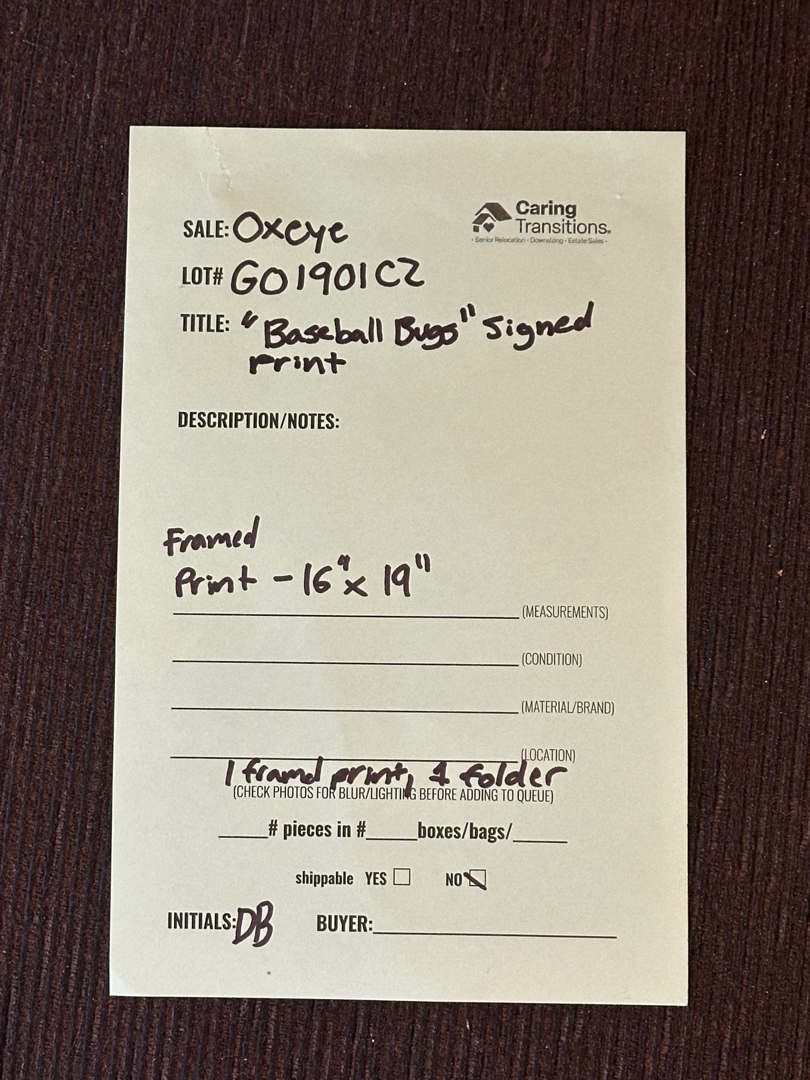 Caring
Transitions.
- Senior Relocation - Downsizing - Estate Sales -
SALE: Oxeye
LOT# GO1901C2
TITLE: "Baseball Bugs" Signed
Print
DESCRIPTION/NOTES:
Framed
Print - 16" x 19"
(MEASUREMENTS)
(CONDITION)
(MATERIAL/BRAND)
(LOCATION)
1 framd print, 1 folder
(CHECK PHOTOS FOR BLUR/LIGHTING BEFORE ADDING TO QUEUE)
_____# pieces in #_____boxes/bags/______
shippable YES ☐ NO ☒
INITIALS: DB BUYER: